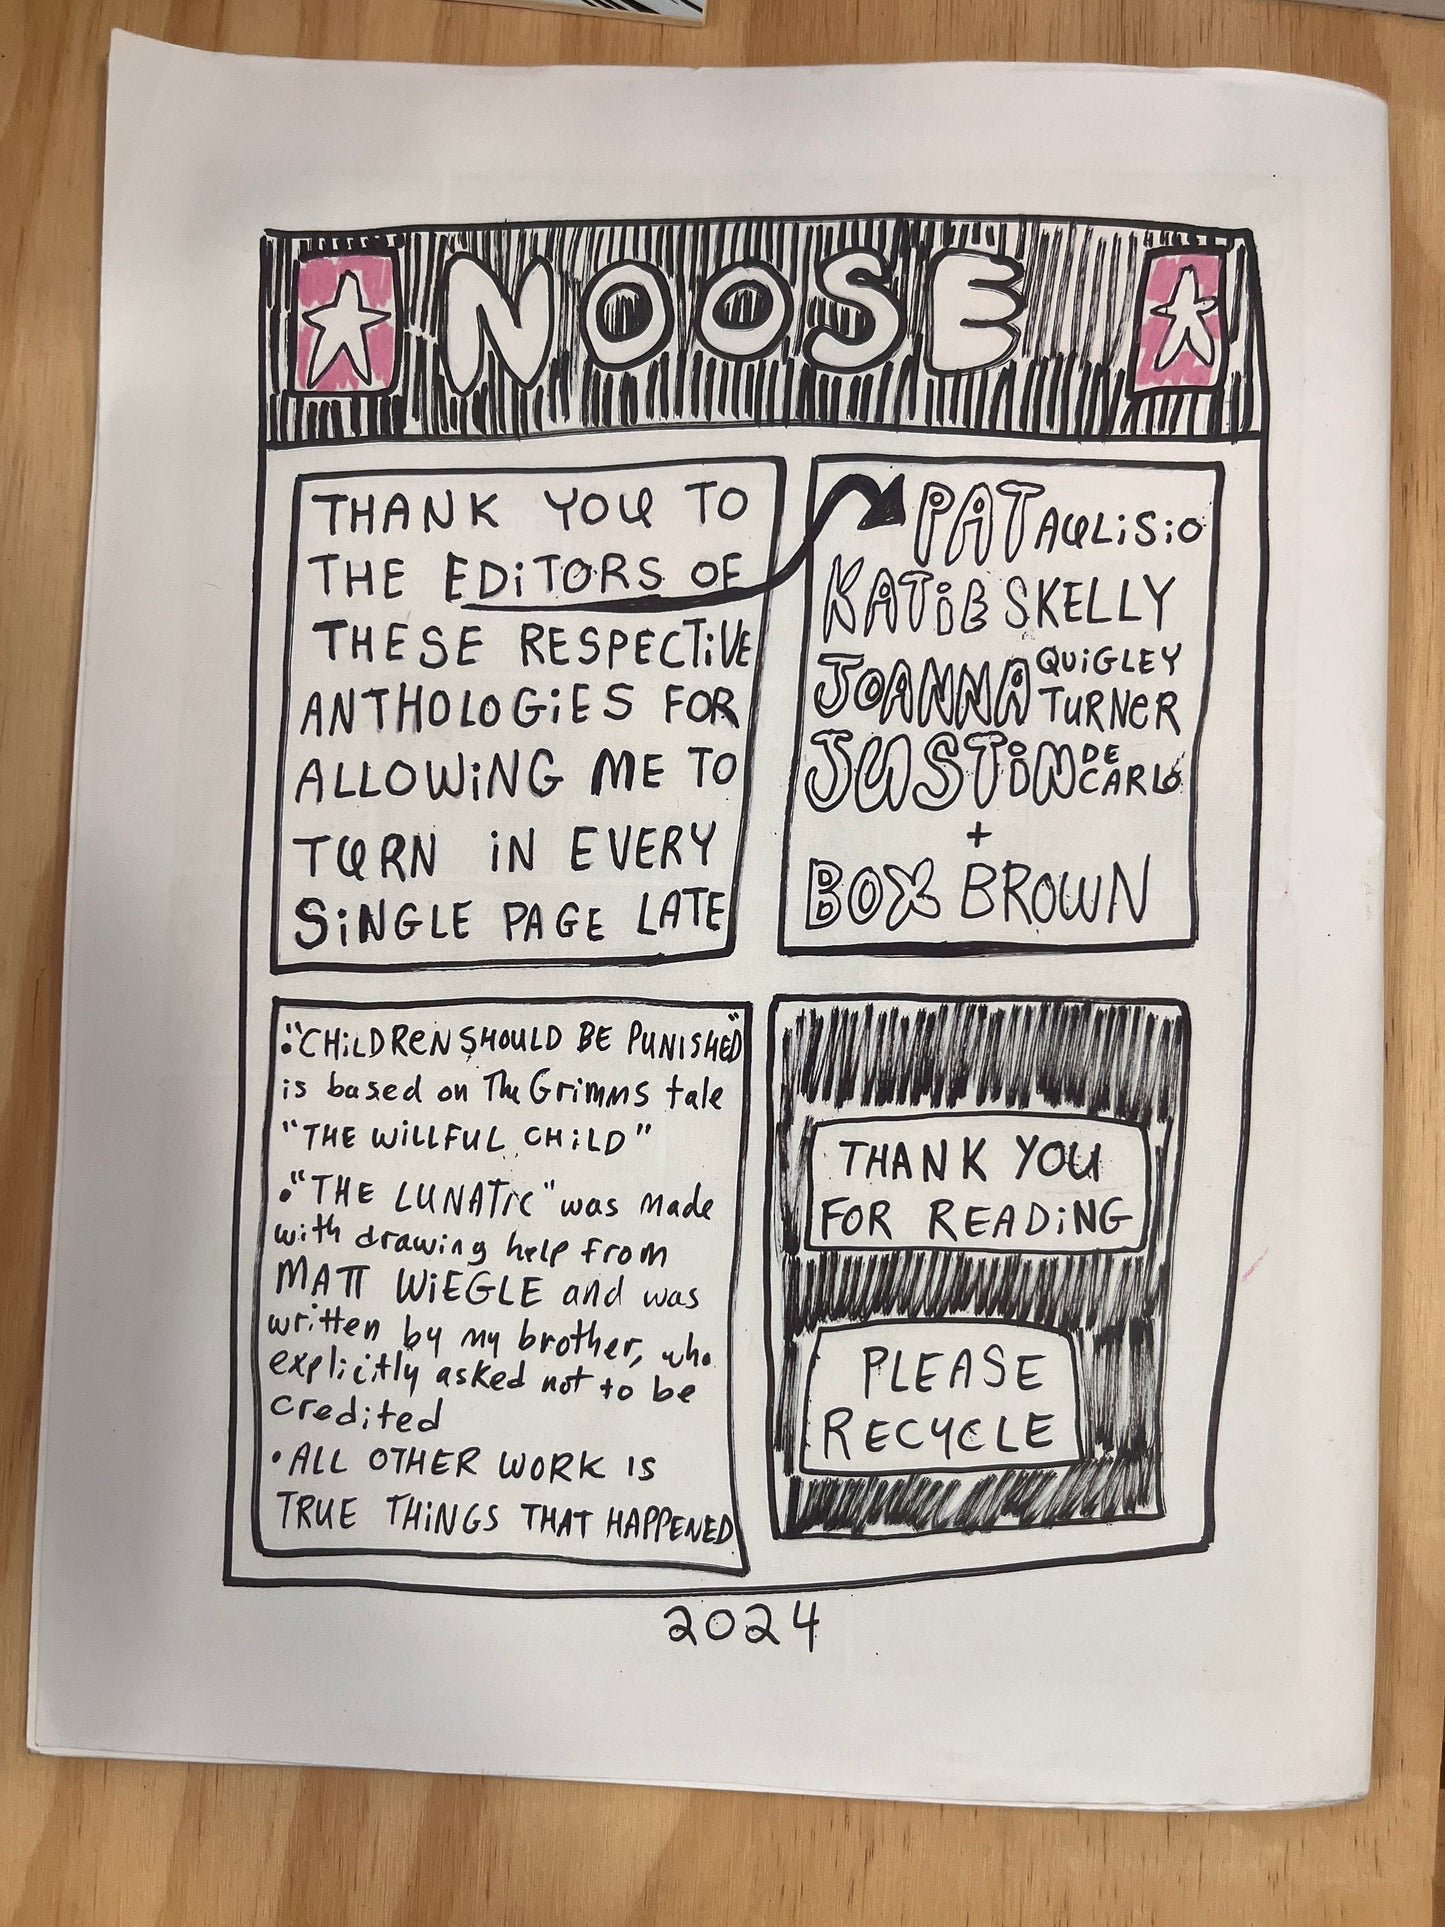 NOOSE
THANK YOU TO
THE EDiTORS OF
THESE RESPECTiVE
ANTHOLOGiES FOR
ALLOWiNG ME TO
TURN iN EVERY
SiNGLE PAGE LATE
PAT AULiSiO
KATiE SKELLY
JOANNA QUiGLEY
TURNER
JUSTiN DE
CARLO
+
BOX BROWN
•"CHiLDReN SHOULD BE PUNISHED"
is based on The Grimms tale
"THE WiLLFUL CHiLD"
•"THE LUNATIC" was made
with drawing help from
MATT WiEGLE and was
written by my brother, who
explicitly asked not to be
credited
•ALL OTHER WORK IS
TRUE THiNGS THAT HAPPENED
THANK YOU
FOR READiNG
PLEASE
RECYCLE
2024